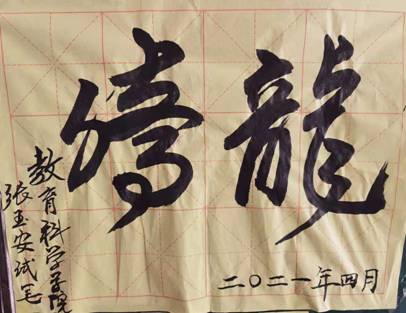 龍騰
二〇二一年四月
教育科学学院
张玉安试笔